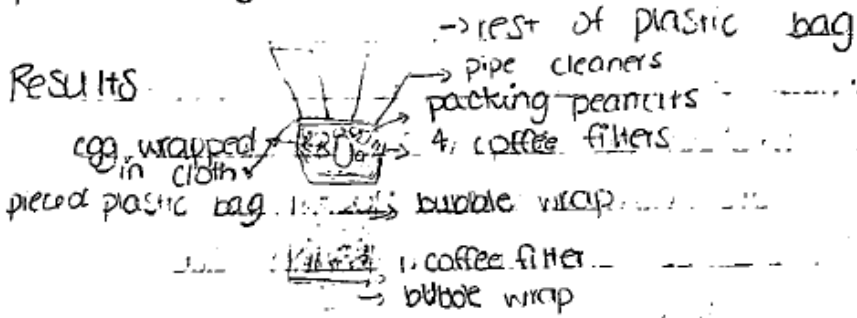 → rest of plastic bag
Results → pipe cleaners
packing peanuts
egg wrapped → 4. coffee filters
in cloth
pieced plastic bag → bubble wrap
1. coffee filter
→ bubble wrap